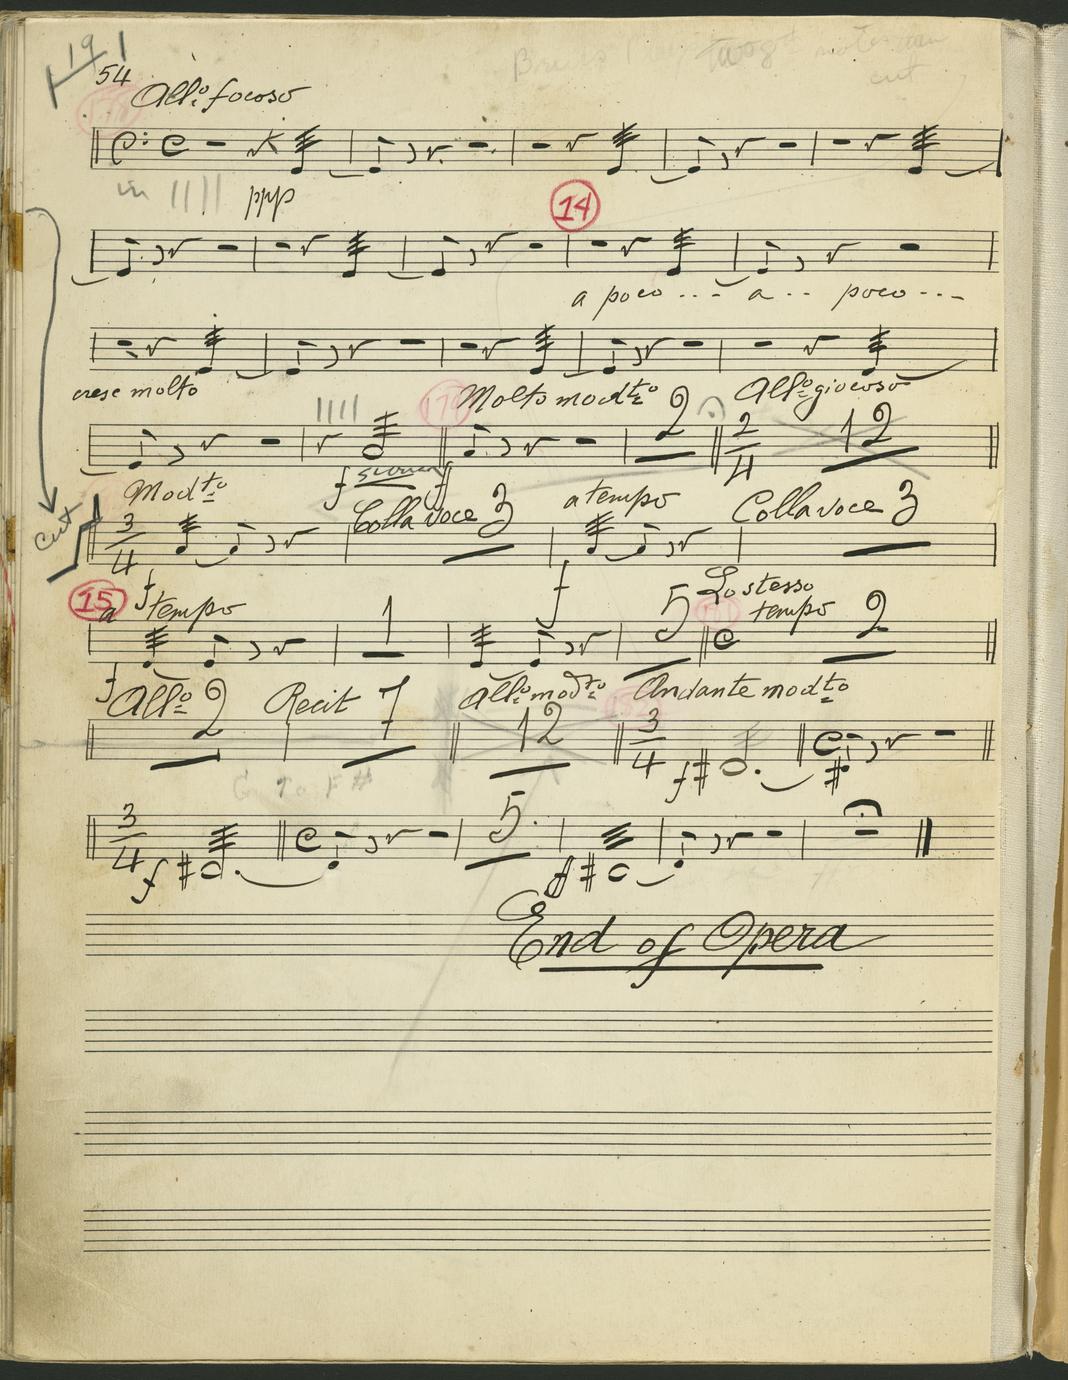 19 1
54
All.o focoso
in
ppp
14
a poco ... a .. poco ...
cresc molto
Molto modto 2
Allo giocoso 12
f f
Modto
Colla voce 3
a tempo
Colla voce 3
cut
3/4
f f
15
a tempo
1
5
Lo stesso
tempo 2
f
Allo 2
Recit 7
Allo modto 12
Andante modto
3/4
f
G to F #
3/4
f
5
End of Opera